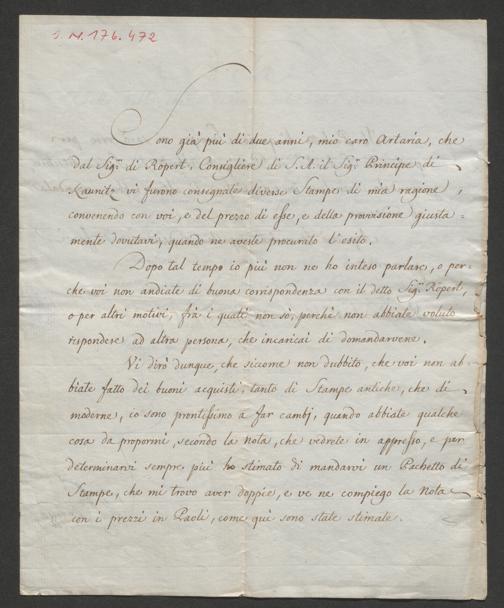 I. N. 176.472
Sono già più di due anni, mio caro Artaria, che
dal Sig.r di Ropert, Consigliere di S. A. il Sig.r Principe di
Kaunitz vi furono consegnate diverse Stampe di mia ragione,
convenendo con voi, e del prezzo di esse, e della provvisione giusta=
mente dovutavi, quando ne aveste procurato l'esito.
Dopo tal tempo io più non ne ho inteso parlare, o per-
che voi non andiate di buona corrispondenza con il detto Sig.r Ropert,
o per altri motivi, frà i quali non sò, perchè non abbiate voluto
rispondere ad altra persona, che incaricai di domandarvene.
Vi dirò dunque, che siccome non dubbito, che voi non ab
biate fatto dei buoni acquisti, tanto di Stampe antiche, che di
moderne, io sono prontissimo à far cambj, quando abbiate qualche
cosa da propormi, secondo la nota, che vedrete in appresso, e per
determinarvi sempre più ho stimato di mandarvi un Pachetto di
Stampe, che mi trovo aver doppie, e ve ne compiego la Nota
con i prezzi in Paoli, come quì sono state stimate.